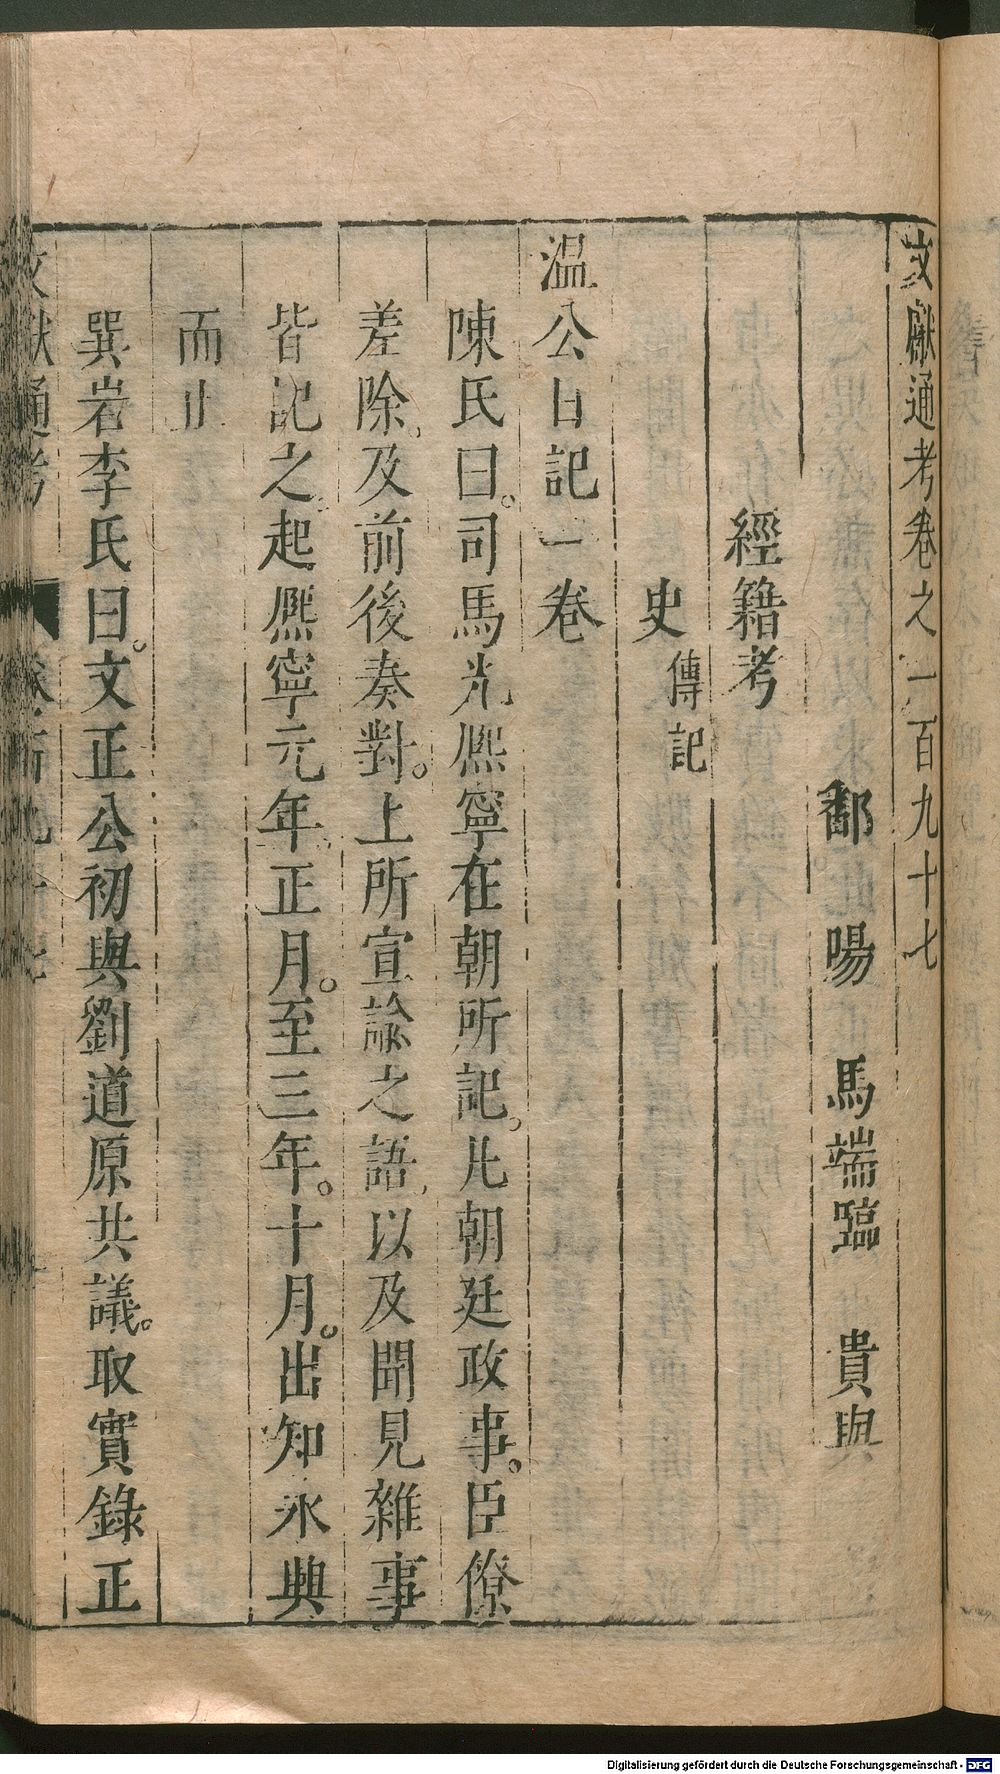 文獻通考卷之一百九十七
鄱陽 馬端臨 貴與
經籍考
史傳記
温公日記一卷
陳氏曰。司馬光熈寧在朝所記。凡朝廷政事。臣僚
差除。及前後奏對。上所宣諭之語。以及聞見雜事
皆記之。起熈寧元年正月。至三年。十月。出知永興
而止
巽岩李氏曰。文正公初與劉道原共議。取實錄正
文獻通考
Digitalisierung gefördert durch die Deutsche Forschungsgemeinschaft - DFG